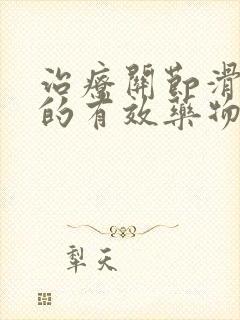 治療關節滑
的有效藥物
犁天